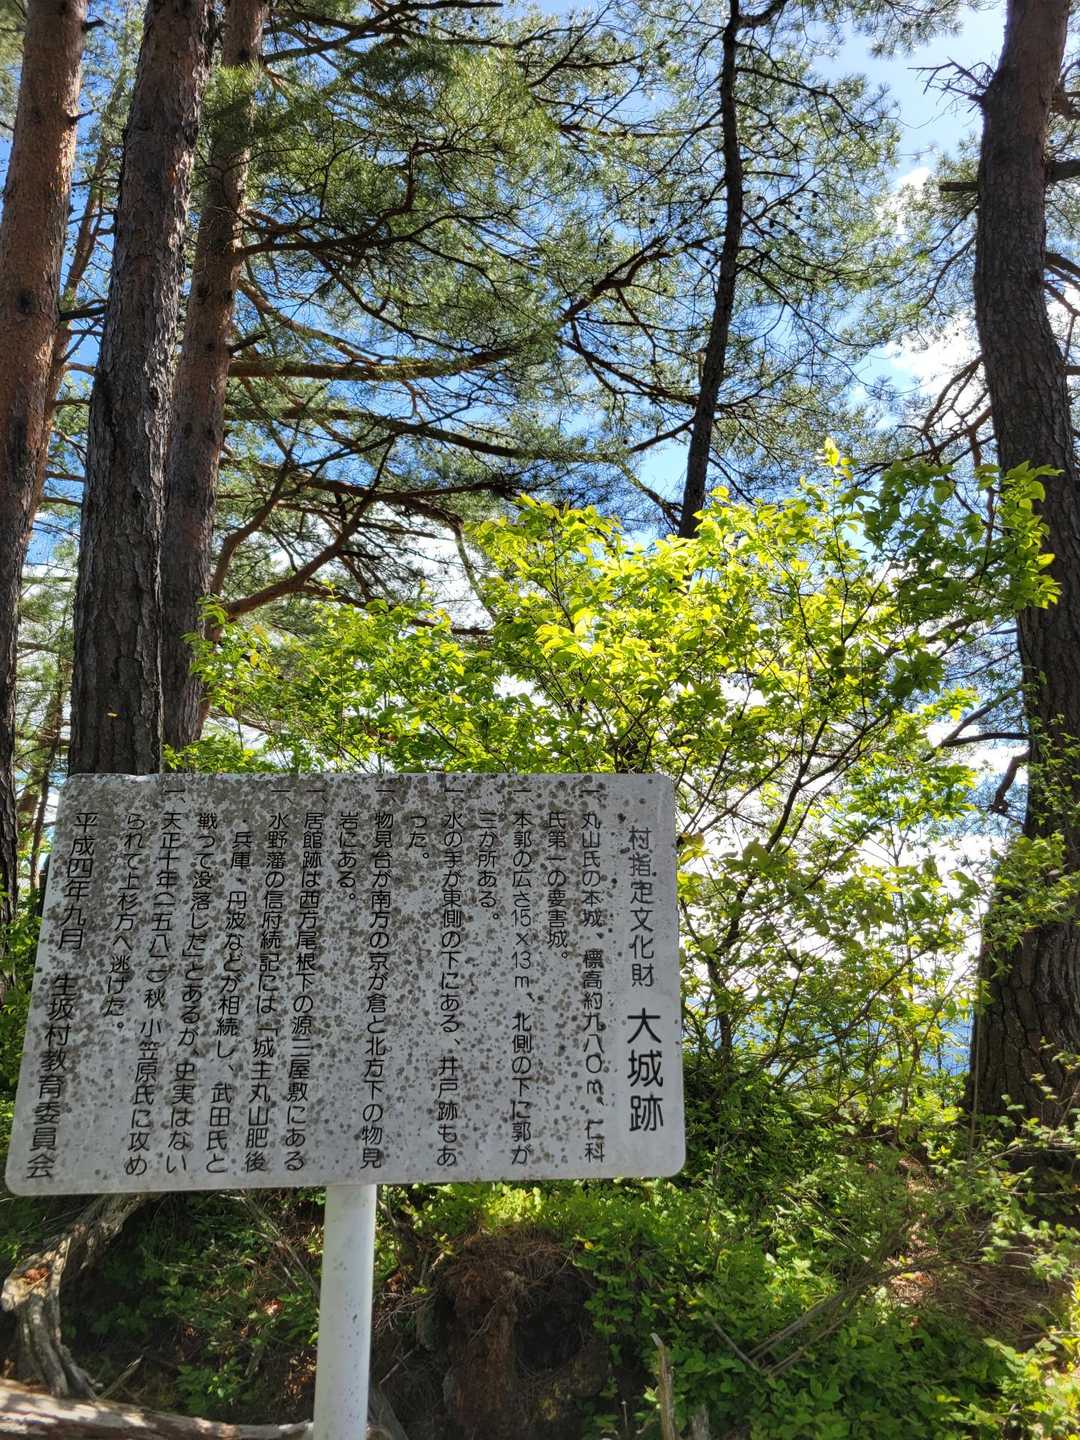 村指定文化財 大城跡
一、丸山氏の本城、標高約九八〇m、仁科
氏第一の要害城。
一、本郭の広さ15×13m、北側の下に郭が
三か所ある。
一、水の手が東側の下にある、井戸跡もあ
った。
一、物見台が南方の京が倉と北方下の物見
岩にある。
一、居館跡は西方尾根下の源三屋敷にある
一、水野藩の信府続記には「城主丸山肥後
・兵庫、丹波などが相続し、武田氏と
戦って没落した」とあるが、史実はない
一、天正十年（一五八二）秋、小笠原氏に攻め
られて上杉方へ逃げた。
平成四年九月 生坂村教育委員会